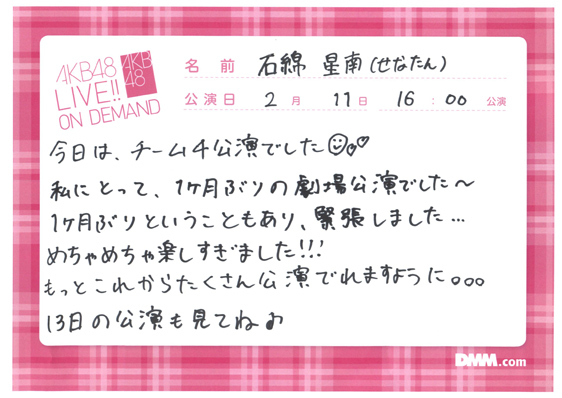 AKB48
LIVE!!
ON DEMAND
AKB
48
名前 石綿 星南(せなたん)
公演日 2月 11日 16:00 公演
今日は、チーム4公演でした
私にとって、1ヶ月ぶりの劇場公演でした〜
1ヶ月ぶりということもあり、緊張しました…
めちゃめちゃ楽しすぎました!!!
もっとこれからたくさん公演でれますように。。。
13日の公演も見てね♫
DMM.com